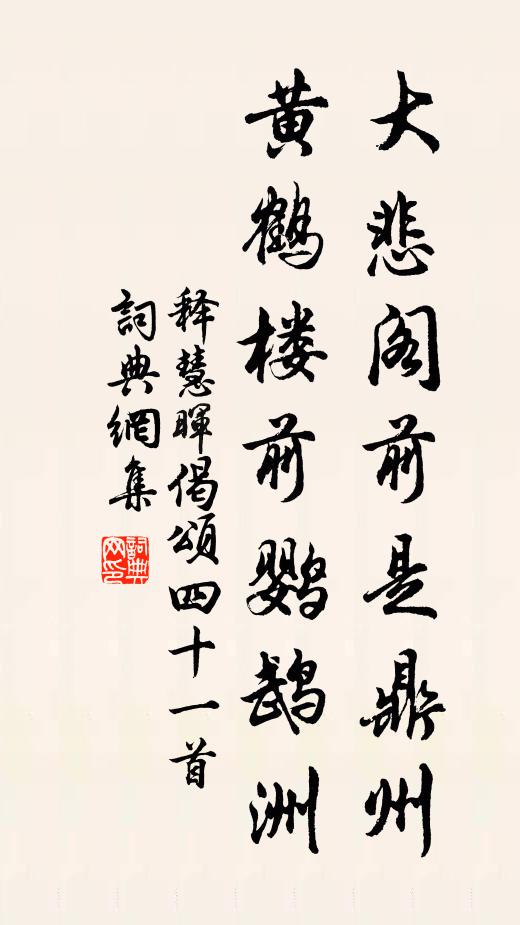 大悲阁前是鼎州
黄鹤楼前鹦鹉洲
释慧晖偈颂四十一首
詞典網集
詞典网印